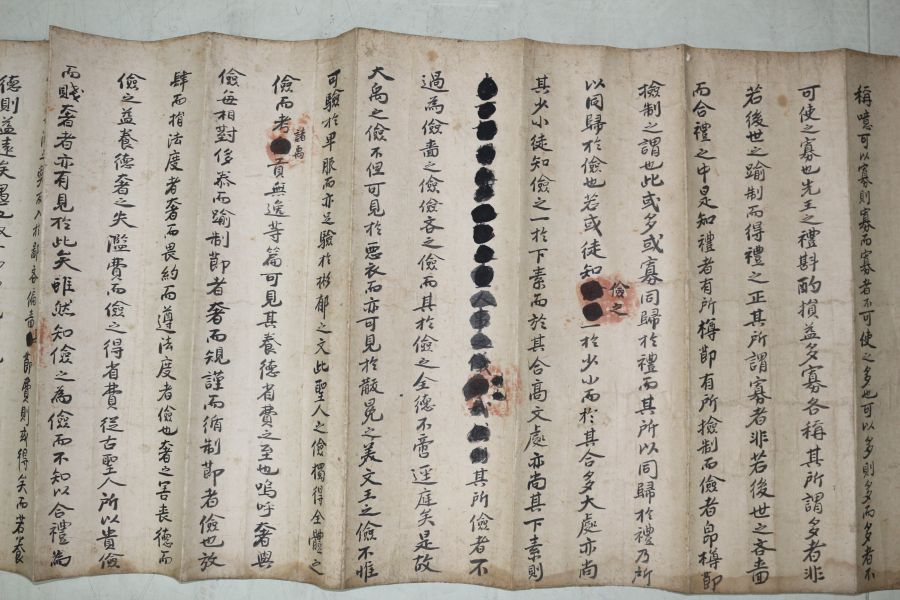 稱噫可以寡則寡而寡者不可使之多也可以多則多而多者不
可使之寡也先王之禮斟酌損益多寡各稱其所謂多者非
若後世之踰制而得禮之正其所謂寡者非若後世之吝嗇
而合禮之中是知禮者有所樽節有所撿制而儉者卽樽節
撿制之謂也此或多或寡同歸於禮而其所以同歸於禮乃所
以同歸於儉也若或徒知儉之一於少小而於其合多大處亦尚
其少小徒知儉之一於下素而於其合高文處亦尚其下素則
其所儉者不
過為儉嗇之儉儉吝之儉而其於儉之全德不啻逕庭矣是故
大禹之儉不但可見於惡衣而亦可見於黻冕之美文王之儉不惟
可驗於卑服而亦足驗於彬郁之文此聖人之儉獨得全體之
儉而考諸禹貢無逸等篇可見其養德省費之至也嗚呼奢與
儉每相對侈恭而踰制節者奢而規謹而循制節者儉也放
肆而損法度者奢而畏約而遵法度者儉也奢之害喪德而
儉之益養德奢之失濫費而儉之得省費從古聖人所以貴儉
而賤奢者亦有見於此矣雖然知儉之為儉而不知以合禮為
節費則或得矣而若養
德則益遠矣